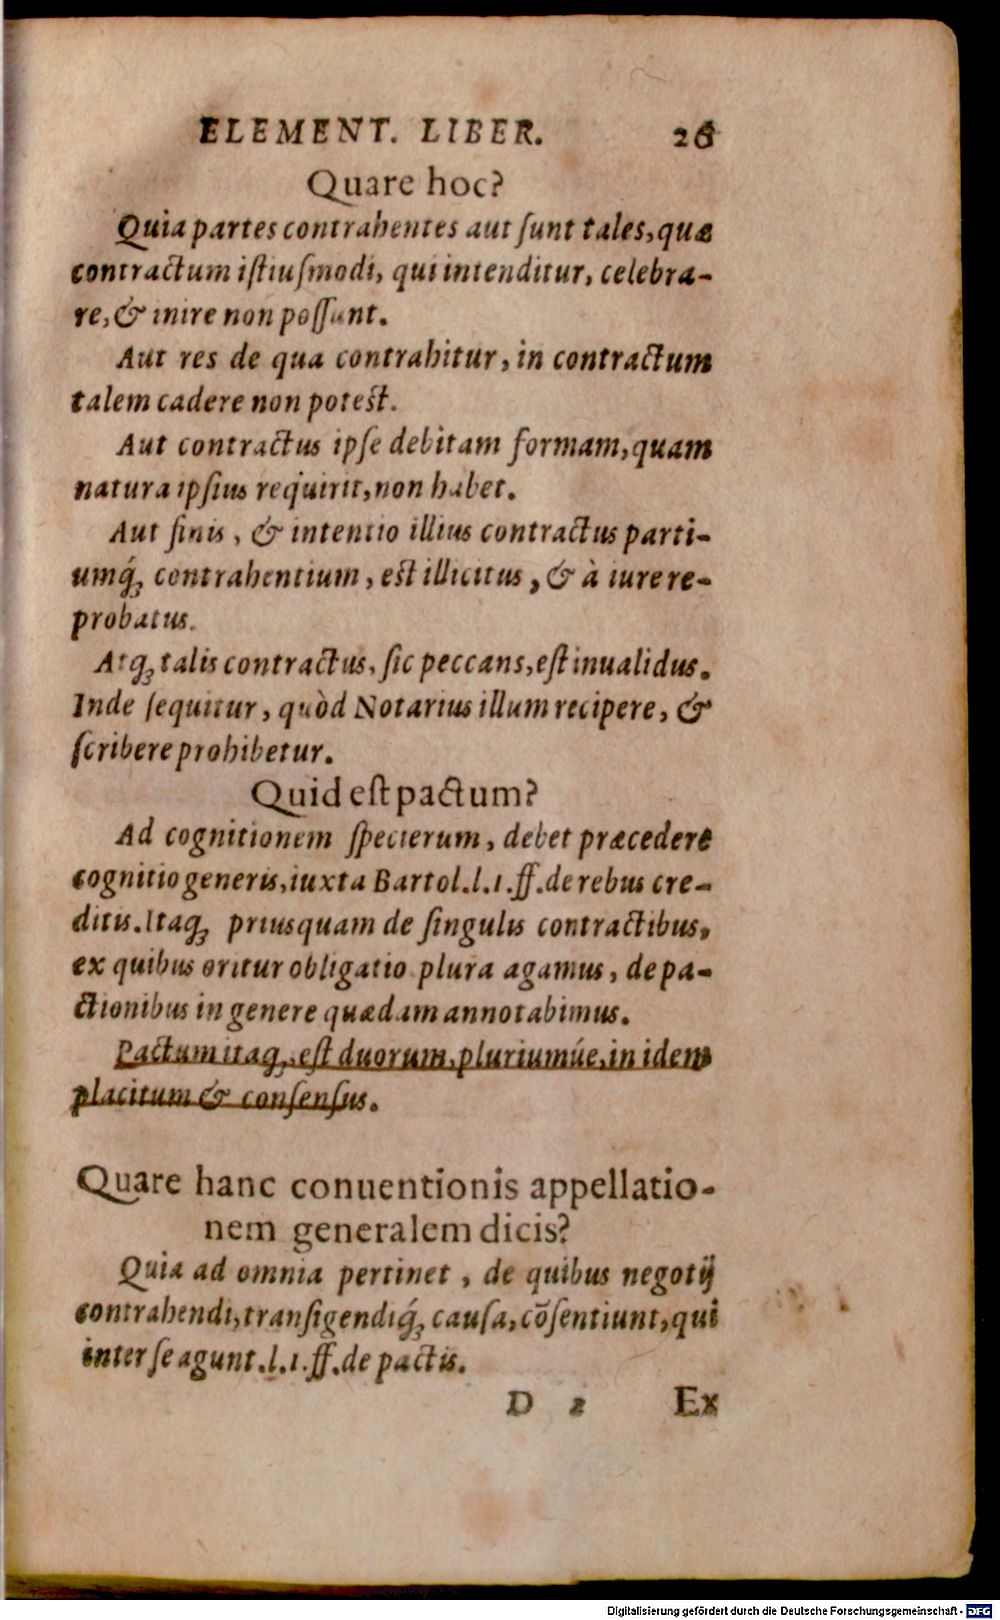 ELEMENT. LIBER. 26
Quare hoc?
Quia partes contrahentes aut ſunt tales, quæ
contractum iſtiuſmodi, qui intenditur, celebra-
re, & inire non poſſunt.
Aut res de qua contrahitur, in contractum
talem cadere non poteſt.
Aut contractus ipſe debitam formam, quam
natura ipſius requirit, non habet.
Aut finis, & intentio illius contractus parti-
umq́ꝫ contrahentium, eſt illicitus, & à iure re-
probatus.
Atqꝫ talis contractus, ſic peccans, eſt inualidus.
Inde ſequitur, quòd Notarius illum recipere, &
ſcribere prohibetur.
Quid eſt pactum?
Ad cognitionem ſpecierum, debet præcedere
cognitio generis, iuxta Bartol. l. 1. ff. de rebus cre-
ditis. Itaqꝫ priusquam de ſingulis contractibus,
ex quibus oritur obligatio plura agamus, de pa-
ctionibus in genere quædam annotabimus.
Pactum itaqꝫ, eſt duorum, pluriumúe, in idem
placitum & conſenſus.
Quare hanc conuentionis appellatio-
nem generalem dicis?
Quia ad omnia pertinet, de quibus negotij
contrahendi, tranſigendiq́ꝫ cauſa, cõſentiunt, qui
inter ſe agunt. l. 1. ff. de pactis.
D 2 Ex
Digitalisierung gefördert durch die Deutsche Forschungsgemeinschaft - DFG